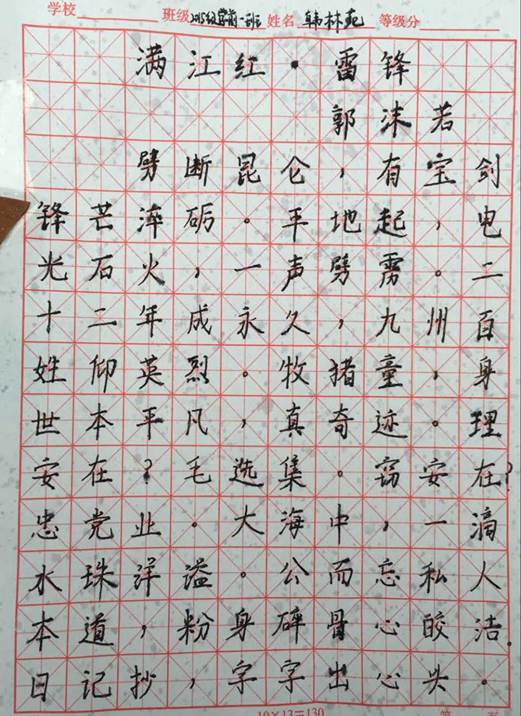 学校 班级 2015级学前一班 姓名 韩林苑 等级分
满江红·雷锋
郭沫若
劈断昆仑，有宝剑
锋芒淬砺。平地起，电
光石火，一声劈雳。二
十二年成永久，九州百
姓仰英烈。牧猪童，身
世本平凡，真奇迹。理
安在？毛选集。窍安在？
忠党业。大海中，一滴
水珠洋溢。公而忘私人
本道，粉身碎骨心皎洁.
日记抄，字字出心头。
10×13=130